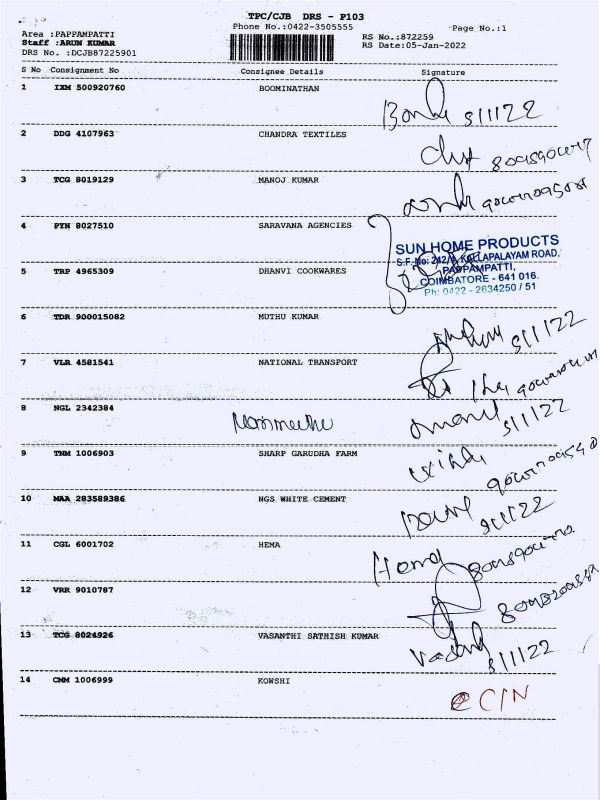 TPC/CJB DRS - P103
Phone No.:0422-3505555
Page No.:1
Area :PAPPAMPATTI
RS No.:872259
Staff :ARUN KUMAR
RS Date:05-Jan-2022
DRS No. :DCJB87225901
S No Consignment No Consignee Details Signature
1 IXM 500920760 BOOMINATHAN
5/1/22
2 DDG 4107963 CHANDRA TEXTILES
3 TCG 8019129 MANOJ KUMAR
4 PYN 8027510 SARAVANA AGENCIES
SUN HOME PRODUCTS
S.F.No: 242/ KALLAPALAYAM ROAD,
PAPPAMPATTI,
COIMBATORE - 641 016.
Ph: 0422 - 2634250 / 51
5 TRP 4965309 DHANVI COOKWARES
6 TDR 900015082 MUTHU KUMAR
5/1/22
7 VLR 4581541 NATIONAL TRANSPORT
8 NGL 2342384
5/1/22
9 TNM 1006903 SHARP GARUDHA FARM
10 MAA 283589386 NGS WHITE CEMENT
5/1/22
11 CGL 6001702 HEMA
Hema
12 VRR 9010787
13 TCG 8024926 VASANTHI SATHISH KUMAR
5/1/22
14 CMM 1006999 KOWSHI
C/N